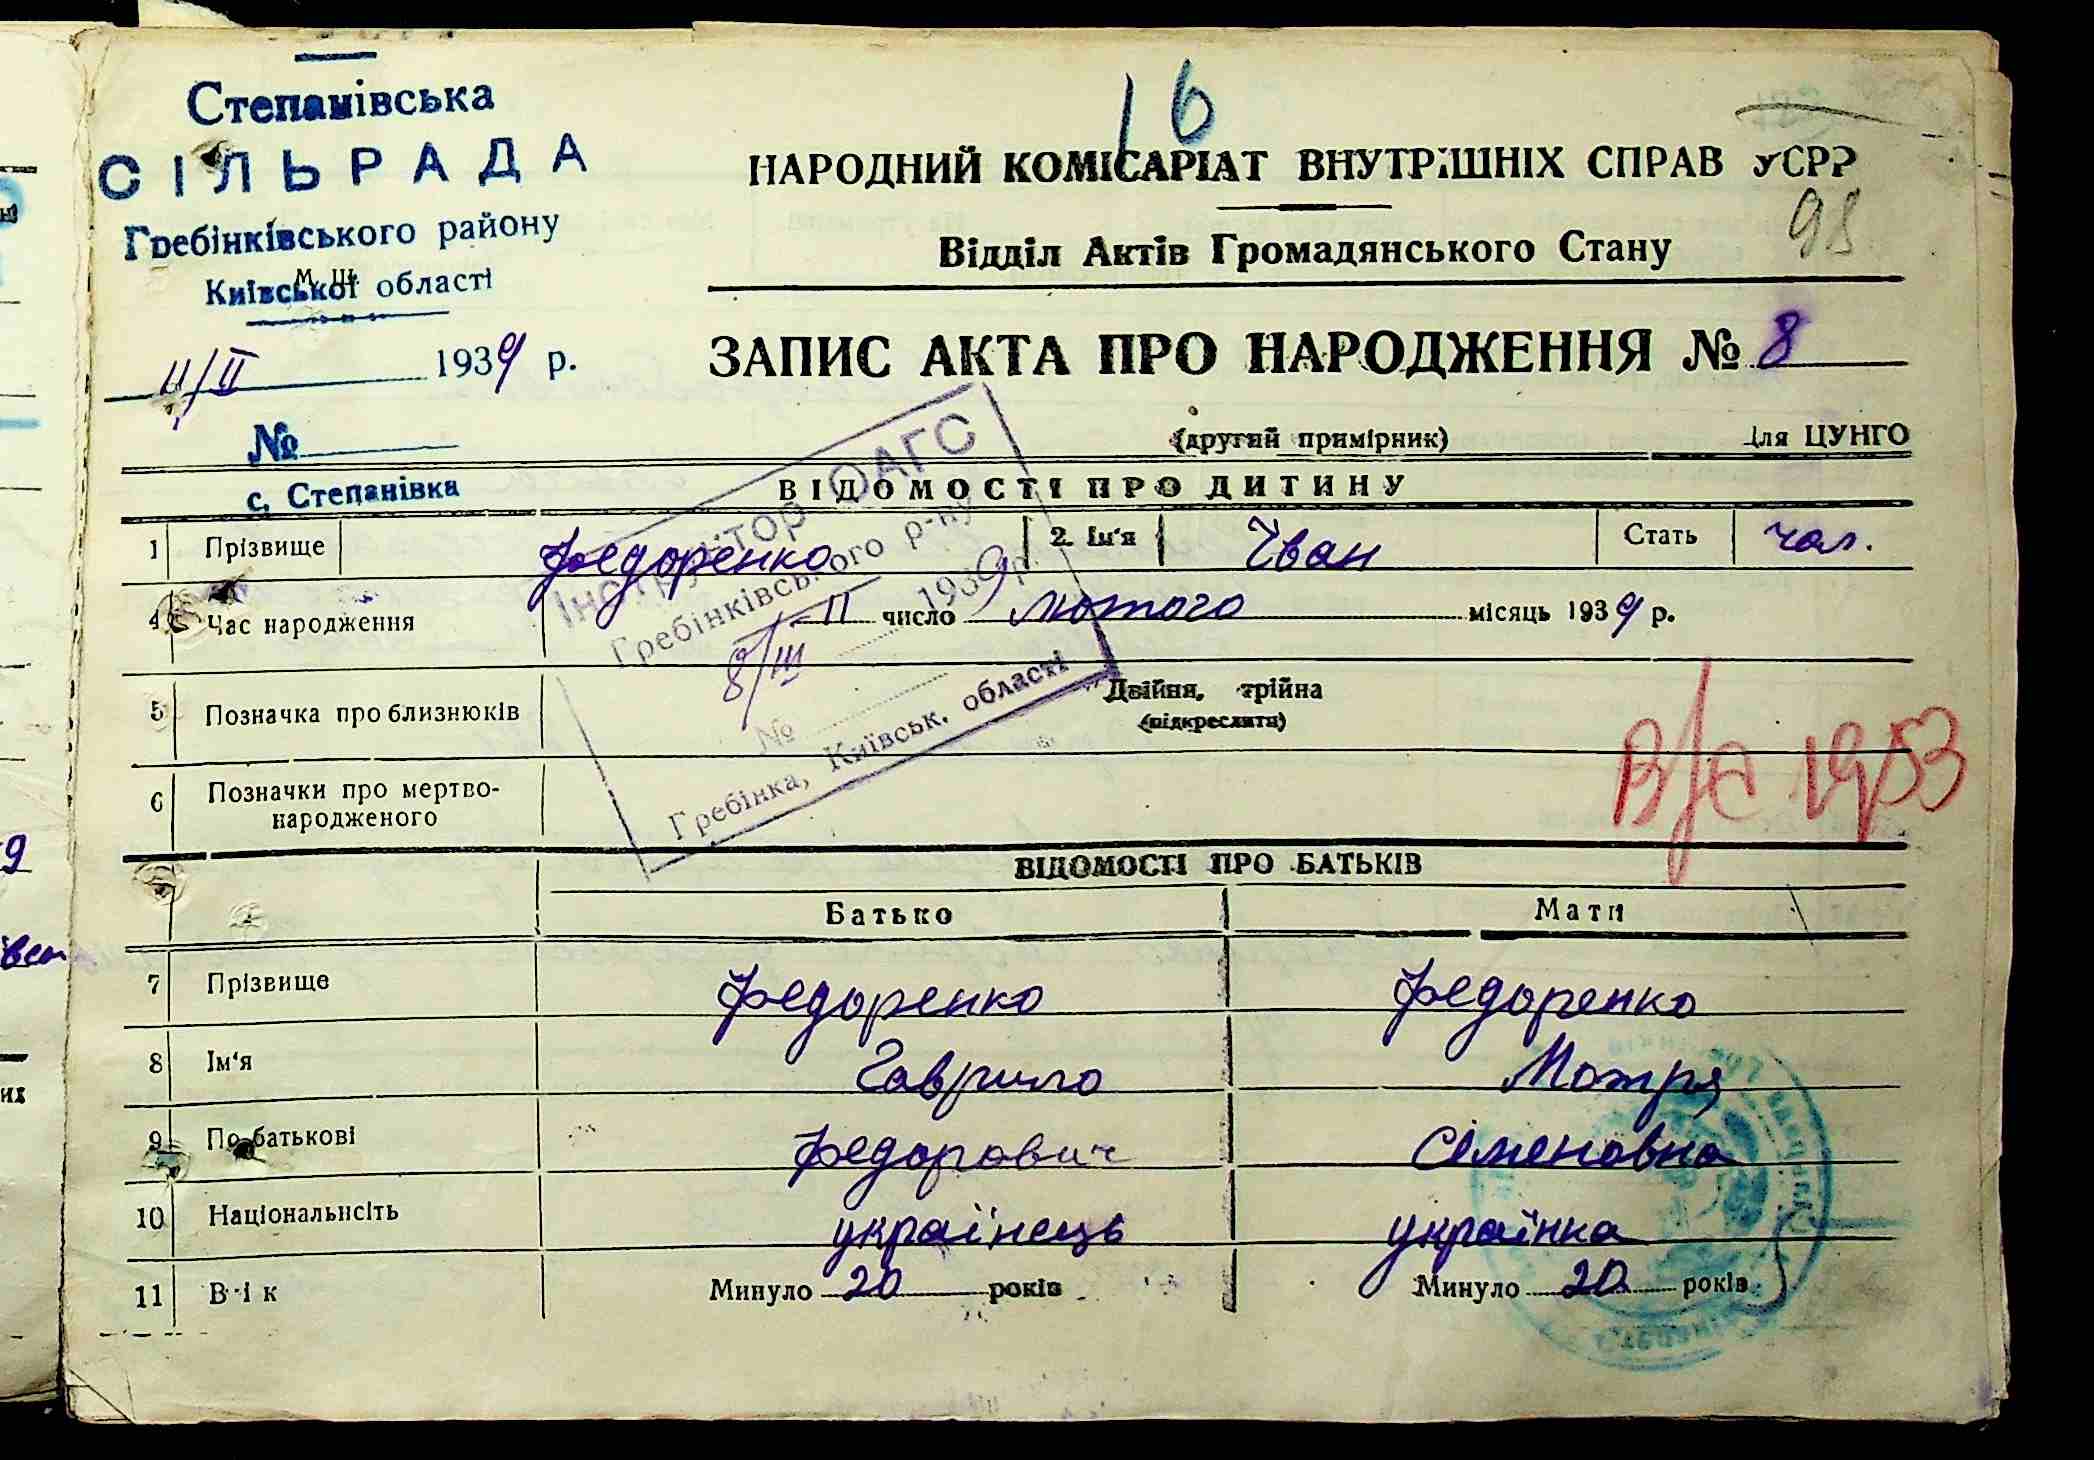 Степанівська
СІЛЬРАДА
Гребінківського району
м. ш.
Київської області
11/II 1939 р.
№
с. Степанівка
16
НАРОДНИЙ КОМІСАРІАТ ВНУТРІШНІХ СПРАВ УСРР
98
Відділ Актів Громадянського Стану
ЗАПИС АКТА ПРО НАРОДЖЕННЯ № 8
(другий примірник) Для ЦУНГО
ВІДОМОСТІ ПРО ДИТИНУ
1 Прізвище Федоренко 2. Ім'я Іван Стать чол.
4 Час народження II число лютого місяць 1939 р.
5 Позначка про близнюків Двійня, трійна
(підкреслити)
6 Позначки про мертво-
народженого
Інструктор ОАГС
Гребінківського р-ну
8/III 1939 р.
№
Гребінка, Київськ. області
В/С 1953
ВІДОМОСТІ ПРО БАТЬКІВ
Батько Мати
7 Прізвище Федоренко Федоренко
8 Ім'я Гаврило Мотря
9 По батькові Федорович Семеновна
10 Національність українець українка
11 Вік Минуло 20 років Минуло 20 років